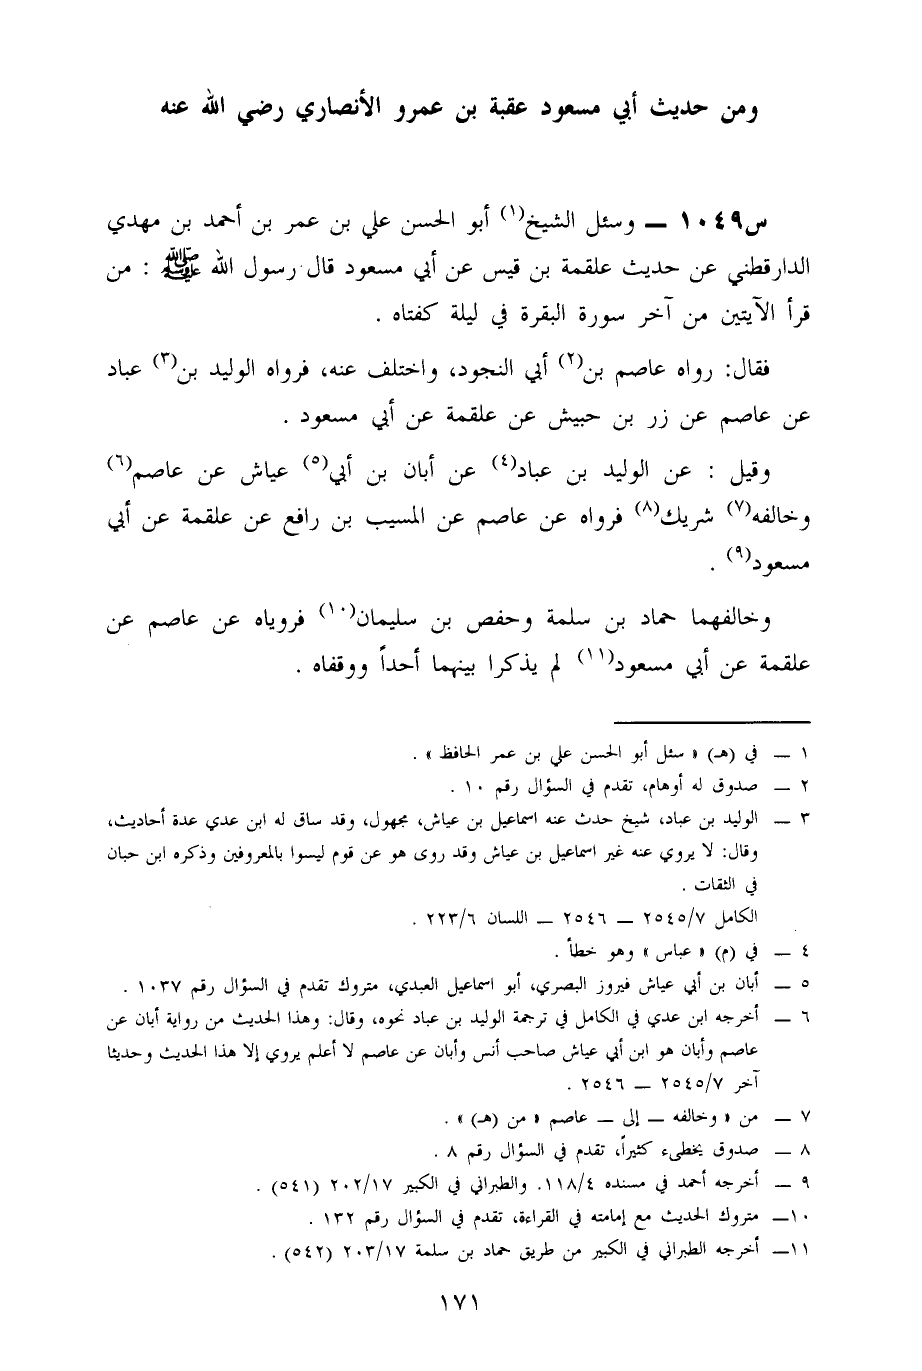 ومن حديث أبي مسعود عقبة بن عمرو الأنصاري رضي الله عنه
س١٠٤٩ ــ وسئل الشيخ(١) أبو الحسن علي بن عمر بن أحمد بن مهدي
الدارقطني عن حديث علقمة بن قيس عن أبي مسعود قال رسول الله ﷺ : من
قرأ الآيتين من آخر سورة البقرة في ليلة كفتاه .
فقال: رواه عاصم بن(٢) أبي النجود، واختلف عنه، فرواه الوليد بن(٣) عباد
عن عاصم عن زر بن حبيش عن علقمة عن أبي مسعود .
وقيل : عن الوليد بن عباد(٤) عن أبان بن أبي(٥) عياش عن عاصم(٦)
وخالفه(٧) شريك(٨) فرواه عن عاصم عن المسيب بن رافع عن علقمة عن أبي
مسعود(٩) .
وخالفهما حماد بن سلمة وحفص بن سليمان(١٠) فروياه عن عاصم عن
علقمة عن أبي مسعود(١١) لم يذكرا بينهما أحداً ووقفاه .
١ ــ في (هـ) « سئل أبو الحسن علي بن عمر الحافظ » .
٢ ــ صدوق له أوهام، تقدم في السؤال رقم ١٠ .
٣ ــ الوليد بن عباد، شيخ حدث عنه اسماعيل بن عياش، مجهول، وقد ساق له ابن عدي عدة أحاديث،
وقال: لا يروي عنه غير اسماعيل بن عياش وقد روى هو عن قوم ليسوا بالمعروفين وذكره ابن حبان
في الثقات .
الكامل ٢٥٤٥/٧ ــ ٢٥٤٦ ــ اللسان ٢٢٣/٦ .
٤ ــ في (م) « عباس » وهو خطأ .
٥ ــ أبان بن أبي عياش فيروز البصري، أبو اسماعيل العبدي، متروك تقدم في السؤال رقم ١٠٣٧ .
٦ ــ أخرجه ابن عدي في الكامل في ترجمة الوليد بن عباد نحوه، وقال: وهذا الحديث من رواية أبان عن
عاصم وأبان هو ابن أبي عياش صاحب أنس وأبان عن عاصم لا أعلم يروي إلا هذا الحديث وحديثا
آخر ٢٥٤٥/٧ ــ ٢٥٤٦ .
٧ ــ من « وخالفه ــ إلى ــ عاصم « من (هـ) » .
٨ ــ صدوق يخطىء كثيراً، تقدم في السؤال رقم ٨ .
٩ ــ أخرجه أحمد في مسنده ١١٨/٤. والطبراني في الكبير ٢٠٢/١٧ (٥٤١) .
١٠ــ متروك الحديث مع إمامته في القراءة، تقدم في السؤال رقم ١٣٢ .
١١ــ أخرجه الطبراني في الكبير من طريق حماد بن سلمة ٢٠٣/١٧ (٥٤٢) .
١٧١